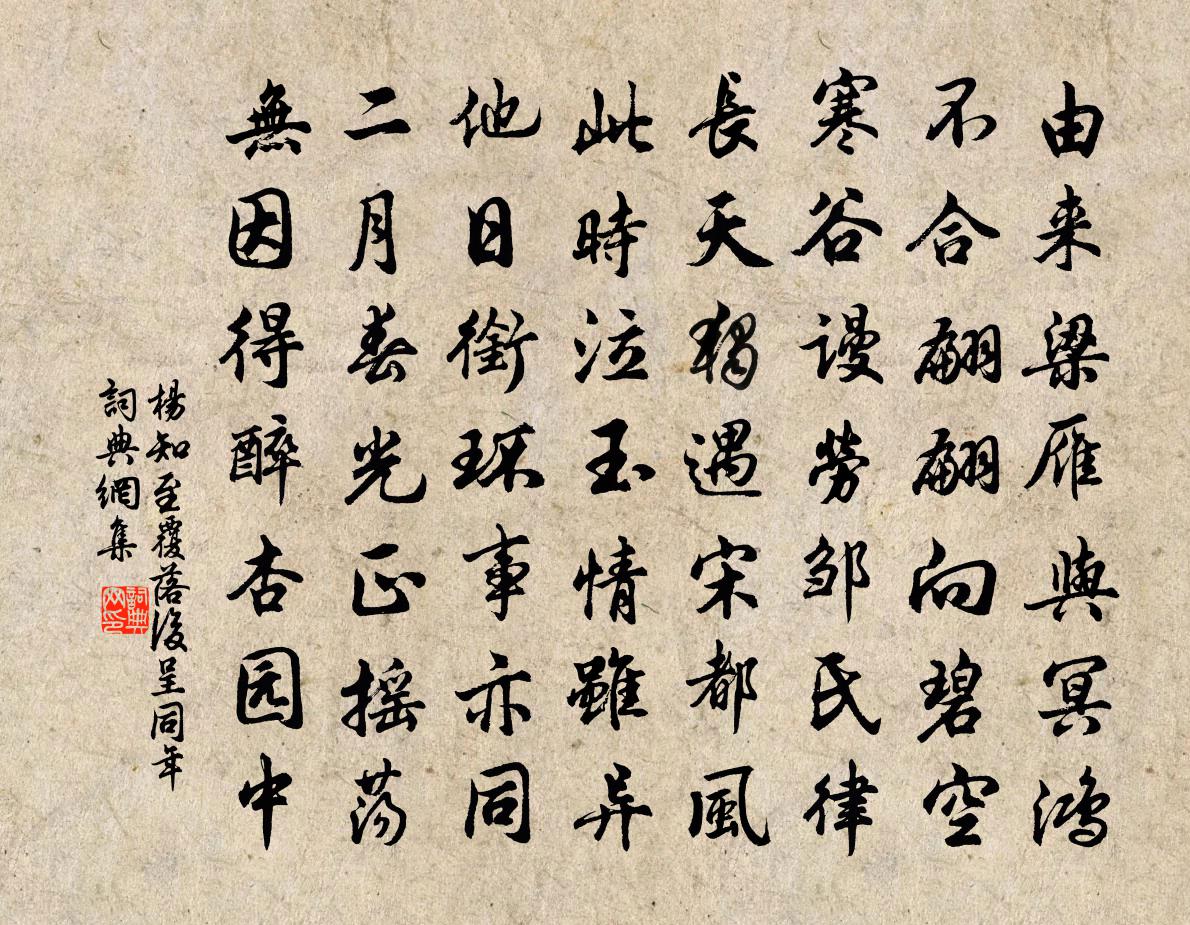 由来梁雁與冥鴻
不合翩翩向碧空
寒谷谩勞邹氏律
長天獨遇宋都風
此時泣玉情雖异
他日銜环事亦同
二月春光正摇荡
無因得醉杏园中
楊知至覆落後呈同年
詞典網集
詞典网印